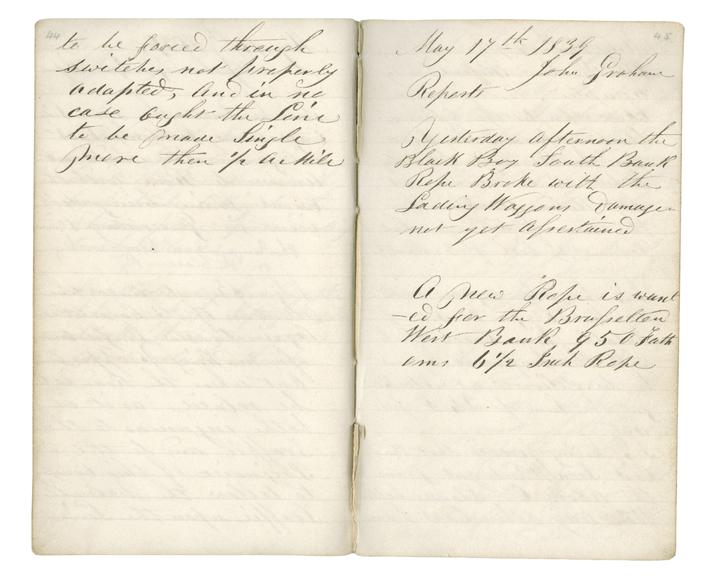 44
to be forced through
switches not properly
adapted, and in no
case ought the Line
to be made Single
more then 1/2 a Mile
45
May 17th 1839
John Graham
Reports
Yesterday afternoon the
Black Boy South Bank
Rope Broke with the
Lading Waggons damage
not yet assertained
A new Rope is want
-ed for the Brusselton
West Bank 950 Fath
oms 6 1/2 Inch Rope